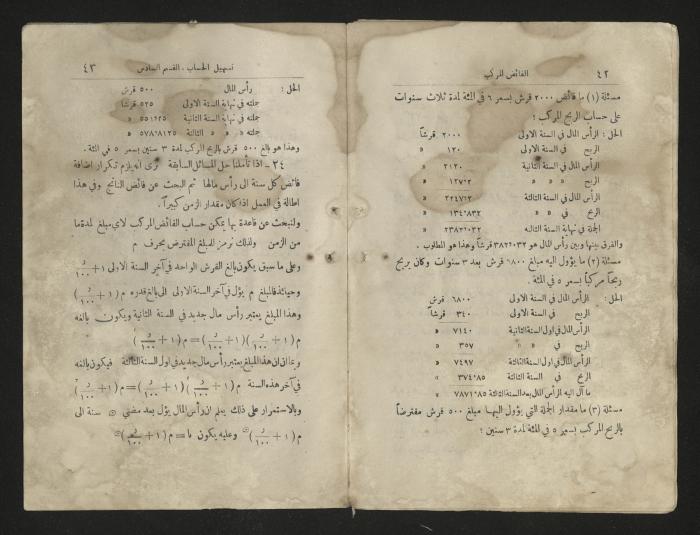 ٤٢ الفائض المركب
مسئلة (١) ما فائض ٢٠٠٠ قرش بسعر ٦ في المئة لمدة ثلاث سنوات
على حساب الربح المركب :
الحل : الرأس المال في السنة الاولى ٢٠٠٠ قرشاً
الربح في السنة الاولى ١٢٠ »
الرأس المال في السنة الثانية ٢١٢٠ »
الربح » » » ١٢٧٢ »
الرأس المال في السنة الثالثة ٢٢٤٧٢ »
الربح في » » ١٣٤٨٣٢ »
الجملة في نهاية السنة الثالثة ٢٣٨٢٠٣٢ »
والفرق بينها وبين رأس المال هو ٣٨٢٠٣٢ قرشاً وهذا هو المطلوب .
مسئلة (٢) ما يؤول اليه مبلغ ٦٨٠٠ قرش بعد ٣ سنوات وكان يربح
ربحاً مركباً بسعر ٥ في المئة .
الحل : الرأس المال في السنة الاولى ٦٨٠٠ قرش
الربح في السنة الاولى ٣٤٠ قرشاً
الرأس المال في اول السنة الثانية ٧١٤٠ »
الربح في » » ٣٥٧ »
الرأس المال في اول السنة الثالثة ٧٤٩٧ »
الربح في السنة الثالثة ٣٧٤٬٨٥ »
ما آل اليه الرأس المال بعد السنة الثالثة ٧٨٧١٬٨٥ »
مسئلة (٣) ما مقدار الجملة التي يؤول اليها مبلغ ٥٠٠ قرش مفترضاً
بالربح المركب بسعر ٥ في المئة لمدة ٣ سنين :
تسهيل الحساب . القسم السادس ٤٣
الحل : رأس المال ٥٠٠ قرش
جملته في نهاية السنة الاولى ٥٢٥ قرشاً
جملته في نهاية السنة الثانية ٥٥١٬٢٥ »
جملته » » » الثالثة ٥٧٨٬٨١٢٥ »
وهذا هو بالغ ٥٠٠ قرش بالربح المركب لمدة ٣ سنين بسعر ٥ في المئة .
٢٤ – اذا تأملنا حل المسائل السابقة نرى انه يلزم تكرار اضافة
فائض كل سنة الى رأس مالها ثم البحث عن فائض الناتج وفي هذا
اطالة في العمل اذا كان مقدار الزمن كبيراً .
ولنبحث عن قاعدة بها يمكن حساب الفائض المركب لاي مبلغ لمدة ما
من الزمن ولذلك نرمز للمبلغ المفترض بحرف م
وعلى ما سبق يكون بالغ القرش الواحد في آخر السنة الاولى ١ + ر/١٠٠
وحينئذ فالمبلغ م يؤل في آخر السنة الاولى الى بالغ قدره م (١ + ر/١٠٠)
وهذا المبلغ يعتبر رأس مال جديد في السنة الثانية ويكون بالغه
م (١ + ر/١٠٠) (١ + ر/١٠٠) = م (١ + ر/١٠٠)٢
وبما ان هذا المبلغ يعتبر رأس مال جديد في اول السنة الثالثة فيكون بالغه
في آخر هذه السنة م (١ + ر/١٠٠)٢ (١ + ر/١٠٠) = م (١ + ر/١٠٠)٣
وبالاستمرار على ذلك يعلم ان رأس المال يؤل بعد مضي ن سنة الى
م (١ + ر/١٠٠)ن وعليه يكون = م (١ + ر/١٠٠)ن